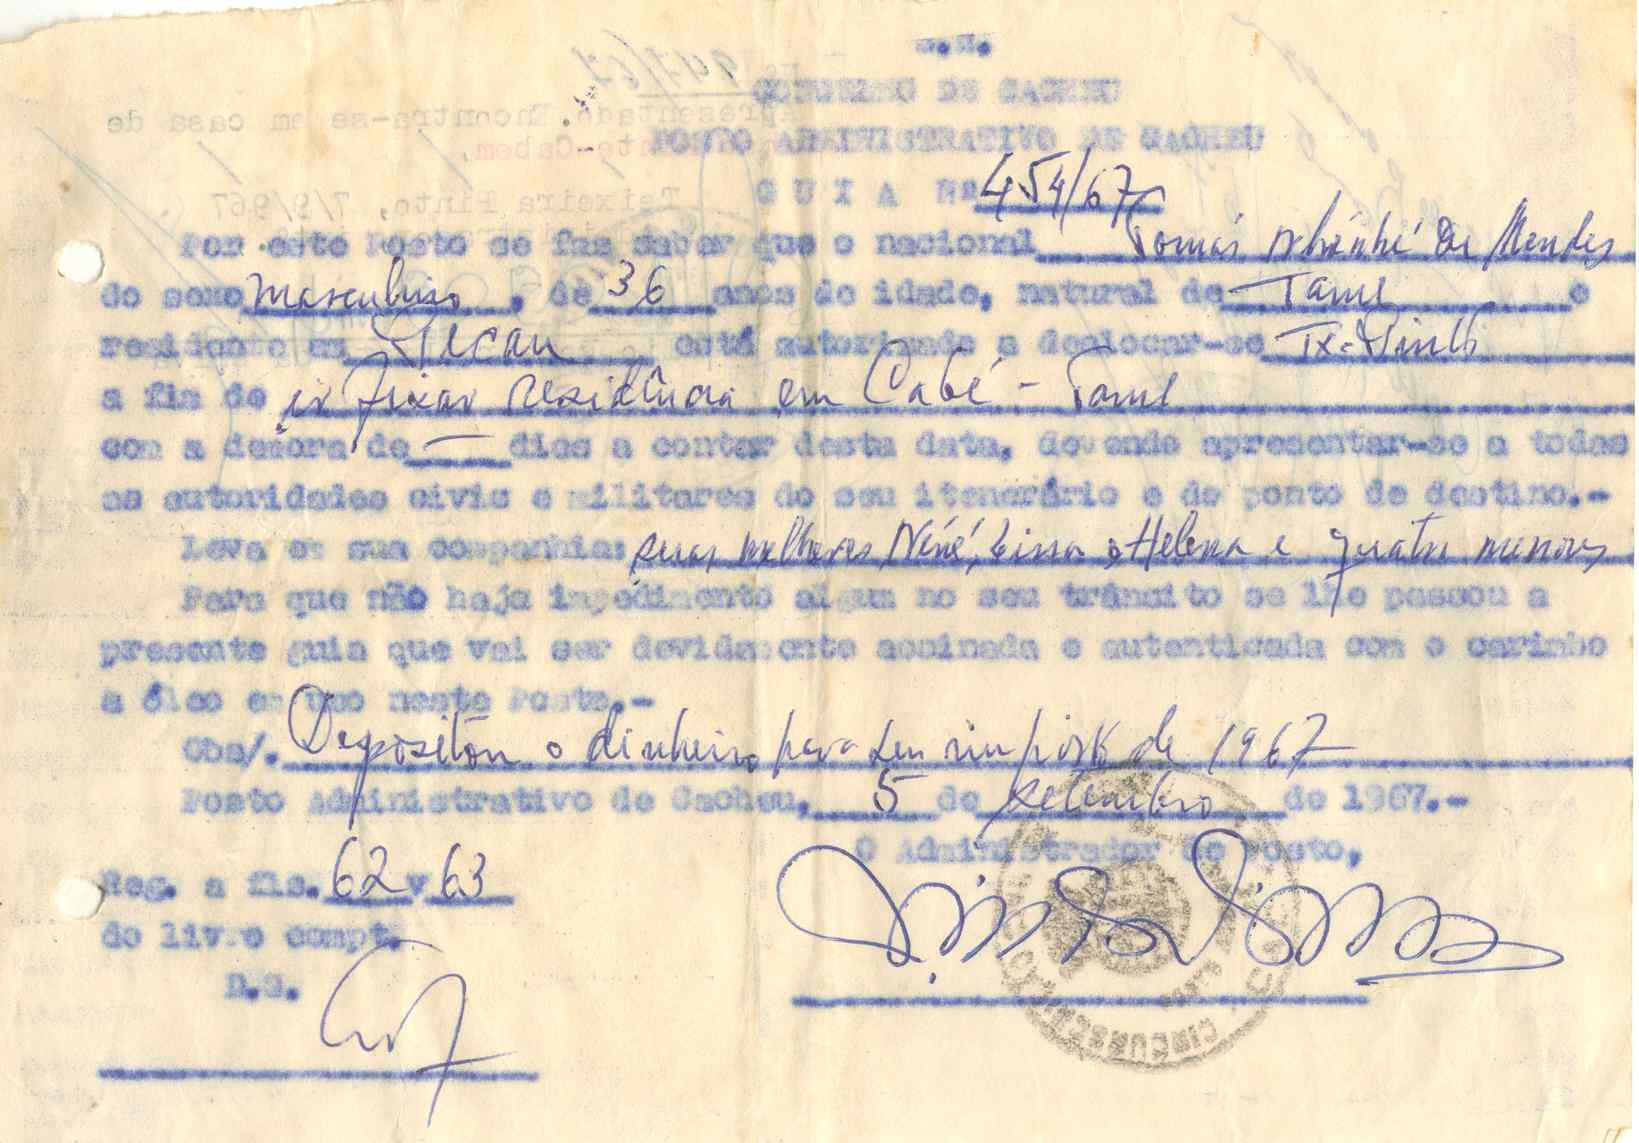 S.R.
CONCELHO DE CACHEU
POSTO ADMINISTRATIVO DE CACHEU
G U I A Nº 454/67
Por este Posto se faz saber que o nacional Tomás De Mendes
do sexo masculino, de 36 anos de idade, natural de Tame e
residente em Pecau está autorizado a deslocar-se Tx. Pinto
a fim de ir fixar residência em Cabé - Tame
com a demora de — dias a contar desta data, devendo apresentar-se a todas
as autoridades civis e militares do seu itenerário e do ponto de destino.-
Leva em sua companhia: suas mulheres Néné, e Helena e quatro menores
Para que não haja impedimento algum no seu trânsito se lhe passou a
presente guia que vai ser devidamente assinada e autenticada com o carimbo
a óleo em uso neste Posto.-
Obs/. Depositou o dinheiro para seu imposto de 1967
Posto Administrativo de Cacheu, 5 de setembro de 1967.-
O Administrador de Posto,
Reg. a fls. 62 v 63
do livro compt.
CIRCUNSCRIÇÃO
947/67
Apresentado. Encontra-se em casa de
-Cabem.
Teixeira Pinto, 7/9/967